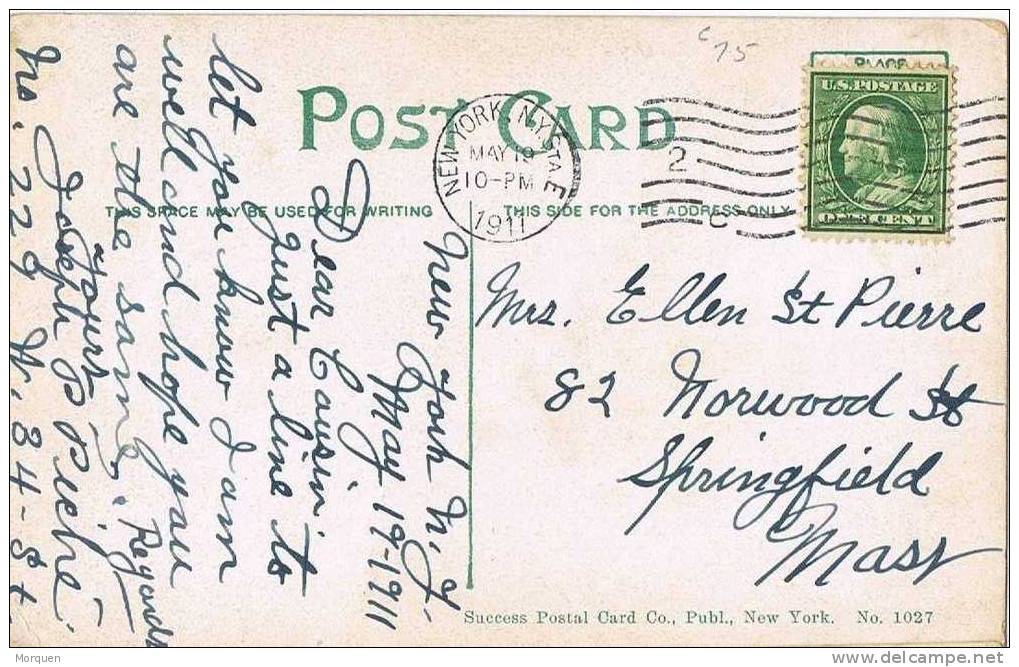 c 15
POST CARD
PLACE
U.S. POSTAGE
ONE CENT
NEW YORK, N.Y. STA E
MAY 19
10-PM
1911
2
C
THIS SPACE MAY BE USED FOR WRITING
THIS SIDE FOR THE ADDRESS ONLY
New York N.Y.
May 19-1911
Dear Cousin,
Just a line to
let you know I am
well and hope you
are the same.
Regards
Yours
Joseph P Piché
No. 229 W. 34-St.
Mrs. Ellen St Pierre
82 Norwood St
Springfield
Mass
Success Postal Card Co., Publ., New York. No. 1027
Morquen
www.delcampe.net